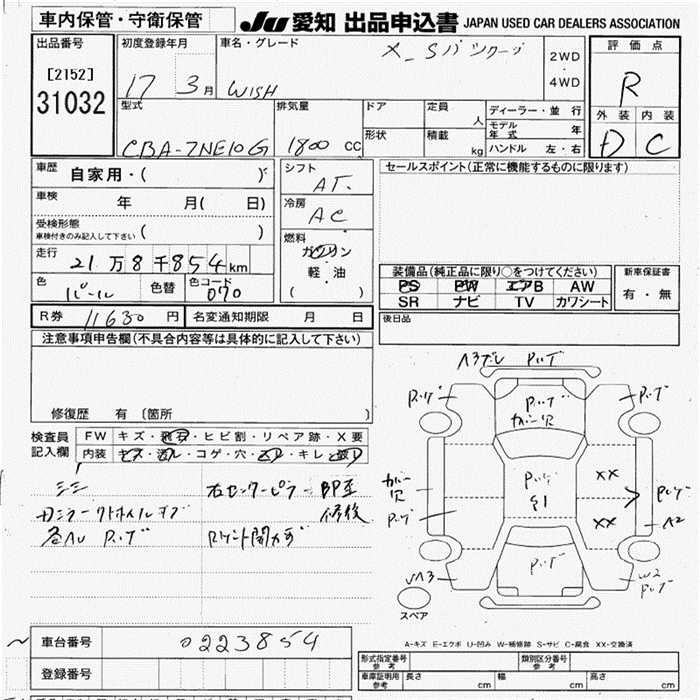 車内保管・守衛保管
JU 愛知 出品申込書 JAPAN USED CAR DEALERS ASSOCIATION
出品番号
[2152]
31032
初度登録年月
17 3月
車名・グレード
X_Sパッケージ
WISH
2WD
・
4WD
評価点
R
外装 内装
D C
型式
CBA-ZNE10G
排気量
1800 cc
ドア
形状
定員 人
積載 kg
ディーラー・並行
モデル年式 年
ハンドル 左・右
車歴
自家用・( )
車検
年 月( 日)
受検形態
車検付きのみ記入して下さい ( )
走行
21万8千854km
色
パール
色替
色コード
070
シフト
AT.
冷房
AC
燃料
ガソリン
軽・油
( )
セールスポイント(正常に機能するものに限ります)
装備品(純正品に限り○をつけてください)
PS PW エアB AW
SR ナビ TV カワシート
新車保証書
有・無
後日品
R券 11630円
名変通知期限 月 日
注意事項申告欄(不具合内容等は具体的に記入して下さい)
修復歴 有 〔箇所 〕
検査員
記入欄
FW キズ・飛石・ヒビ割・リペア跡・X要
内装 キズ・汚レ・コゲ・穴・スレ・キレ・破レ
右センターピラー
修後
各AU Pハゲ
A3ズレ Pハゲ
Pハゲ
Pハゲ
カバー欠
Pハゲ
カバー欠
Pハゲ
Pハゲ
S1
XX
XX
Pハゲ
A2
Pハゲ
A3
W2
Pハゲ
スペア
A-キズ E-エクボ U-凹み W-補修跡 S-サビ C-腐食 XX-交換済
車台番号
0223854
登録番号
形式指定番号
参考
類別区分番号
参考
車庫証明用
参考
長さ cm
幅 cm
高さ cm